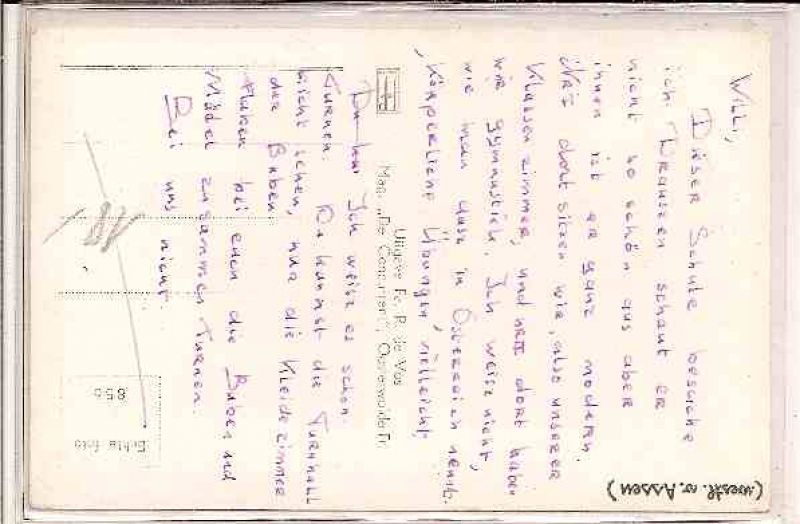 Willi,
Dieser Schule besuche
ich. Draussen schaut er
nicht so schön aus aber
innen ist er ganz modern.
NRI dort sitzen wir, also unserer
Klassenzimmer, und NRII dort haben
wir gymnastiek. Ich weise nicht,
wie man in Österreich nennt.
„Körperliche Übungen” vielleicht,
Ich weise es schon.
Turnen. Du kannst die Turnhall
nicht sehen, nur die Kleidezimmer
der Buben.
Haben bei euch die Buben und
Mädel zusammen Turnen.
Bei uns nicht.
Uitgave Fa. R. de Vos
Mag. „De Concurrent”, Oosterwolde Fr.
Echte foto
(westl. v. Assen)